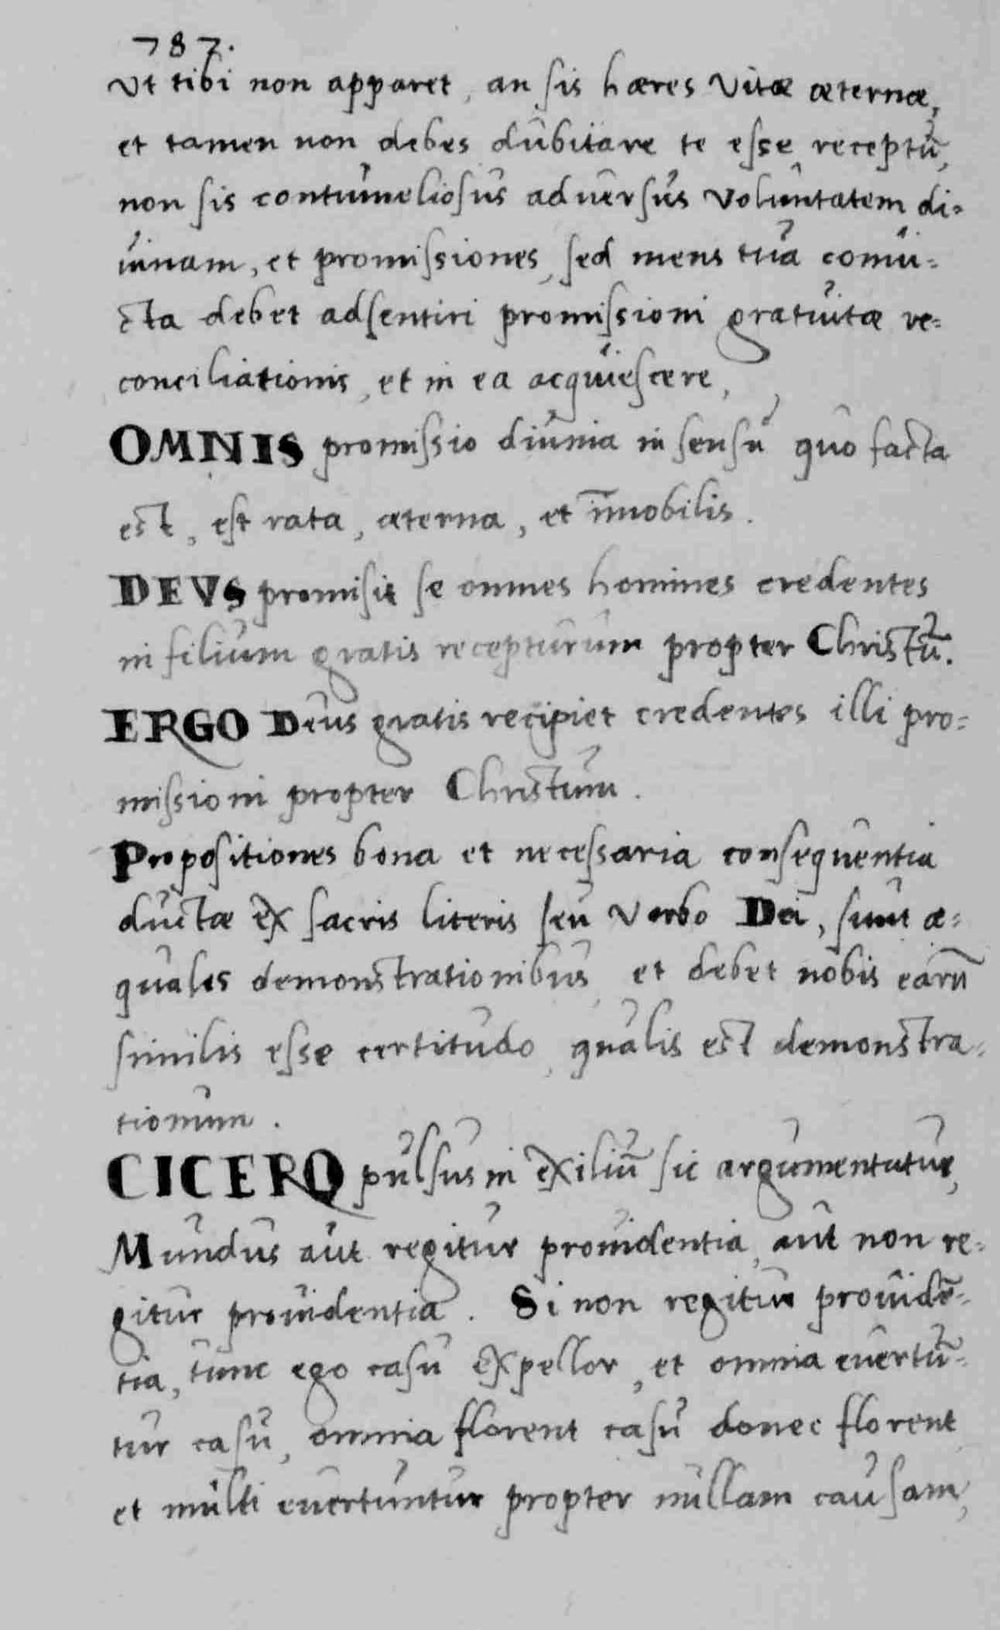 787.
Vt tibi non apparet, an sis hæres Vitæ æternæ,
et tamen non debes dubitare te esse receptū,
non sis contumeliosus aduersus Voluntatem di=
uinam, et promissiones, sed mens tua conui=
cta debet adsentiri promissioni gratuitæ re=
conciliationis, et in ea acquiescere,
OMNIS promissio diuina in sensu quo facta
est, est rata, æterna, et īmobilis.
DEVS promisit se omnes homines credentes
in filium gratis recepturum propter Christū.
ERGO Deus gratis recipiet credentes illi pro=
missioni propter Christum.
Propositiones bona et necessaria consequentia
ductæ ex sacris literis seu Verbo Dei, sunt æ=
quales demonstrationibus, et debet nobis earū
similis esse certitudo, qualis est demonstra=
tionum.
CICERO pulsus in exiliū sic argumentatur,
Mundus aut regitur prouidentia, aut non re=
gitur prouidentia. Si non regitur prouidē=
tia, tunc ego casu expellor, et omnia euertū=
tur casu, omnia florent casu donec florent
et multi euertuntur propter nullam causam,